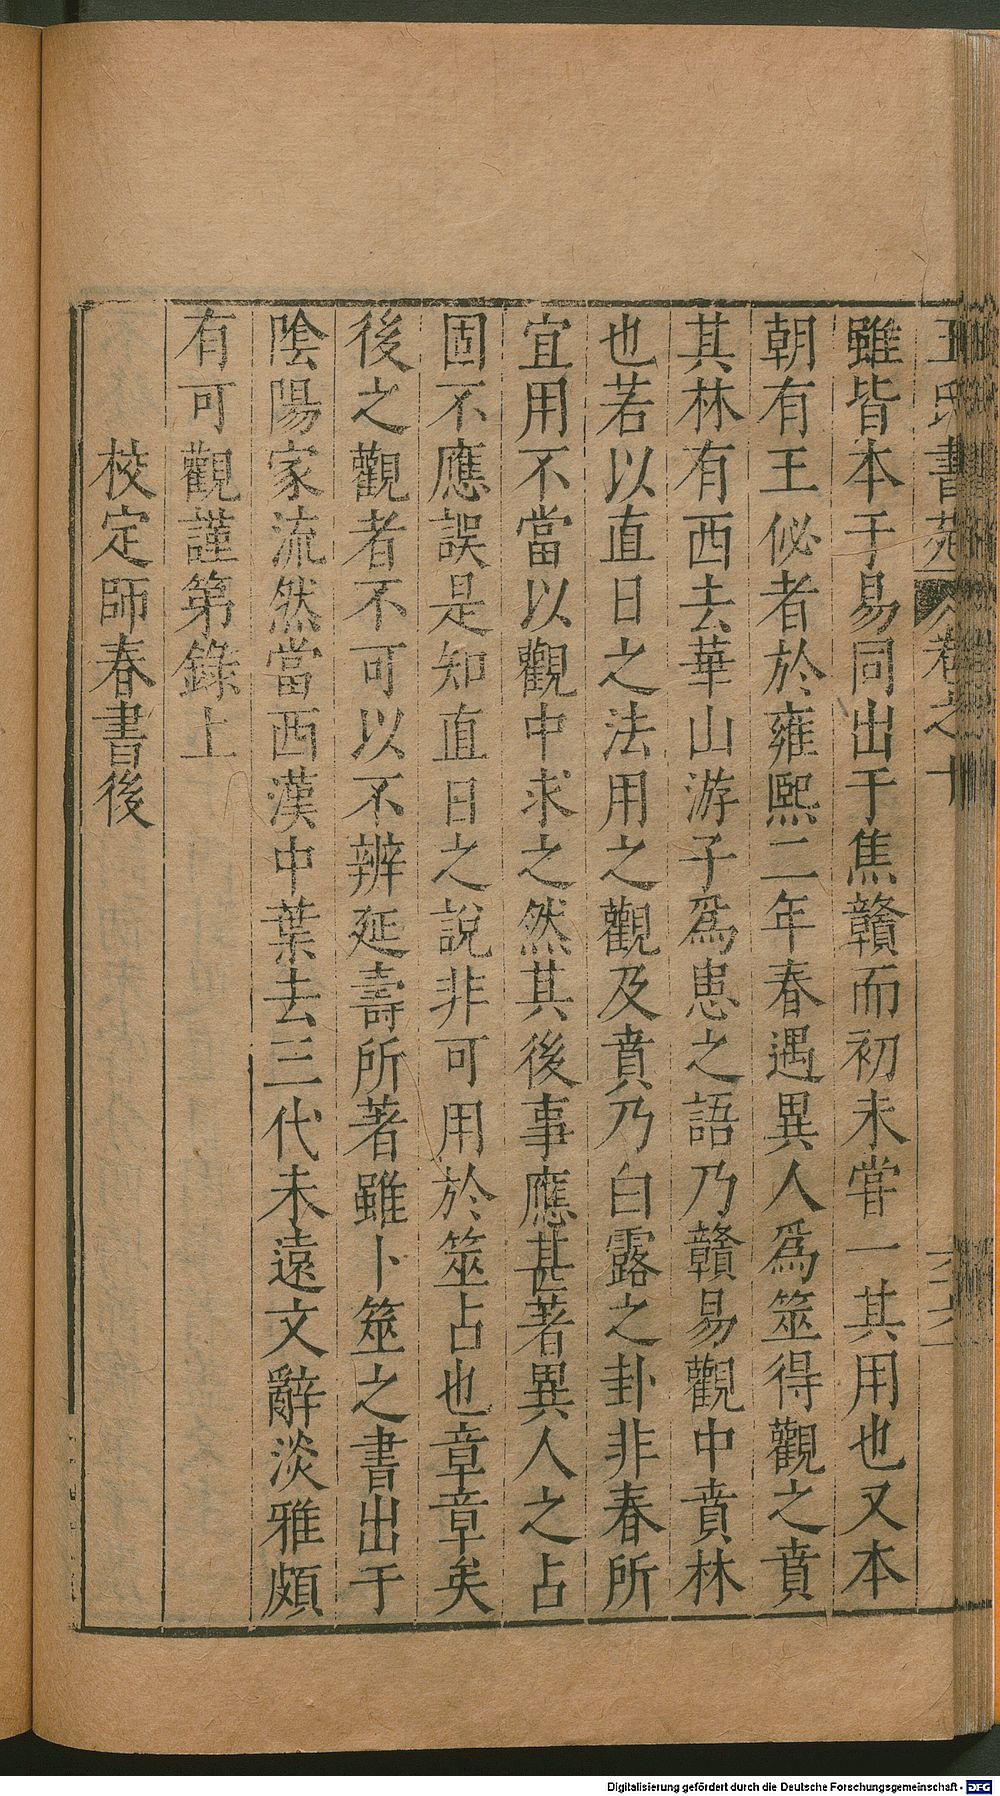 王氏書苑 卷之十 六十六
雖皆本于易同出于焦贛而初未甞一其用也又本
朝有王佖者於雍熙二年春遇異人爲筮得觀之賁
其林有西去華山游子爲患之語乃贛易觀中賁林
也若以直日之法用之觀及賁乃白露之卦非春所
宜用不當以觀中求之然其後事應甚著異人之占
固不應誤是知直日之說非可用於筮占也章章矣
後之觀者不可以不辨延壽所著雖卜筮之書出于
陰陽家流然當西漢中葉去三代未遠文辭淡雅頗
有可觀謹第錄上
校定師春書後
Digitalisierung gefördert durch die Deutsche Forschungsgemeinschaft - DFG